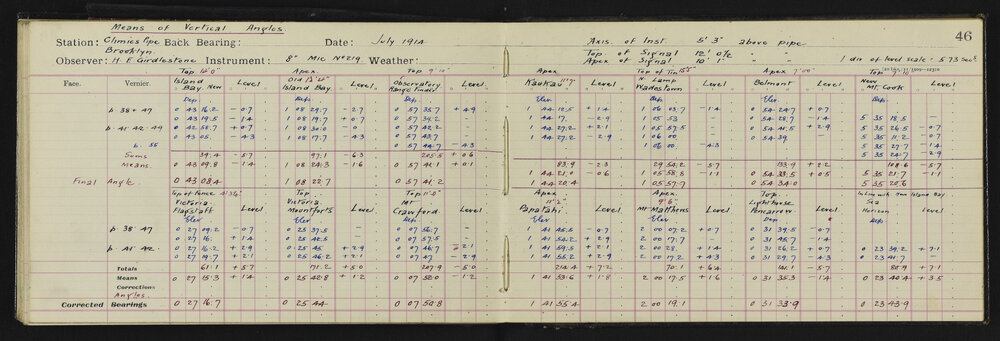 Means of Vertical Angles.
Station: Climies Pipe Back Bearing: Date: July 1914 Axis of Inst. 5' 3" above pipe 46
Brooklyn. Top of Signal 12' 0"
Observer: H E Girdlestone Instrument: 8" Mic No 219 Weather: Apex of Signal 10' 1" 1 div of level scale = 5.73 secs
Top Apex Top 9' 10" Apex Top of Tin Apex 7' 00" Top 7' 10"
Face. Vernier. Island Bay. New Level Old Island Bay. Level Observatory Range Finder Level Kaukau Level N. Lamp Wadestown Level Belmont Level New Mt. Cook Level
Dep. Dep. Dep. Elev. Dep. Elev. Dep.
p. 38+47 0 43 16.2 -0.7 1 08 29.7 -2.7 0 57 35.7 +4.9 1 44 12.5 +1.4 1 06 03.7 -1.4 0 54 24.7 +0.7
0 43 19.5 -1.4 1 08 19.7 +0.7 0 57 34.2 1 44 17. -2.9 1 05 53 0 54 28.7 -1.4 5 35 18.5 -
p. 41.42.44 0 42 58.7 +0.7 1 08 30.0 -0 0 57 42.2 - 1 44 27.2 +2.1 1 05 57.5 0 54 41.5 +2.9 5 35 26.5 -0.7
0 43 05. -4.3 1 08 17.7 -4.3 0 57 43.7 1 44 27.2 -2.9 1 06 00 0 54 39. 5 35 11.2 -0.7
p. 55 0 57 44.7 -4.3 1 06 00. -4.3 5 35 27.7 -1.4
5 35 24.7 -2.9
Sums 39.4 -5.7 97.1 -6.3 205.5 +0.6 83.9 -2.3 29 54.2 -5.7 133.9 +2.2 108.6 -5.7
Means. 0 43 09.8 -1.4 1 08 24.3 -1.6 0 57 41.1 +0.1 1 44 21.0 -0.6 1 05 58.8 -1.1 0 54 33.5 +0.5 5 35 21.7 -1.1
Final Angle 0 43 08.4 1 08 22.7 0 57 41.2 1 44 20.4 1 05 57.7 0 54 34.0 5 35 20.6
Top of Fence Top Top 11' 0" Apex 11' 2" Apex 9' 6" Top. In line with New Island Bay.
Victoria Flagstaff Level Victoria Mountforts Level Mt Crawford Level Papatahi Level Mt Matthews Level Lighthouse Pencarrow Level Sea Horizon Level
Elev Elev Dep. Elev Elev Dep. Dep.
p. 38.47 0 27 09.2 -0.7 0 25 37.5 - 0 07 56.7 - 1 41 45.5 -0.7 2 00 07.2 +0.7 0 31 39.5 -0.7
0 27 16. +1.4 0 25 42.5 - 0 07 57.5 1 41 54.2 +2.9 2 00 17.7 0 31 45.7 -1.4
p. 41.42. 0 27 16.2 +2.9 0 25 45 +2.9 0 07 46.7 -2.1 1 41 59.5 +2.1 2 00 28 +1.4 0 31 26.2 +0.7 0 23 39.2 +7.1
0 27 19.7 +2.1 0 25 46.2 +2.1 0 07 47 -2.9 1 41 55.2 +2.9 2 00 17.2 +4.3 0 31 29.7 -4.3 0 23 41.7 -
Totals 61.1 +5.7 171.2 +5.0 207.9 -5.0 214.4 +7.2 70.1 +6.4 141.1 -5.7 80.9 +7.1
Means 0 27 15.3 +1.4 0 25 42.8 +1.2 0 07 52.0 -1.2 1 41 53.6 +1.8 2 00 17.5 +1.6 0 31 35.3 -1.4 0 23 40.4 +3.5
Corrections
Angles.
Corrected Bearings 0 27 16.7 0 25 44 0 07 50.8 1 41 55.4 2 00 19.1 0 31 33.9 0 23 43.9